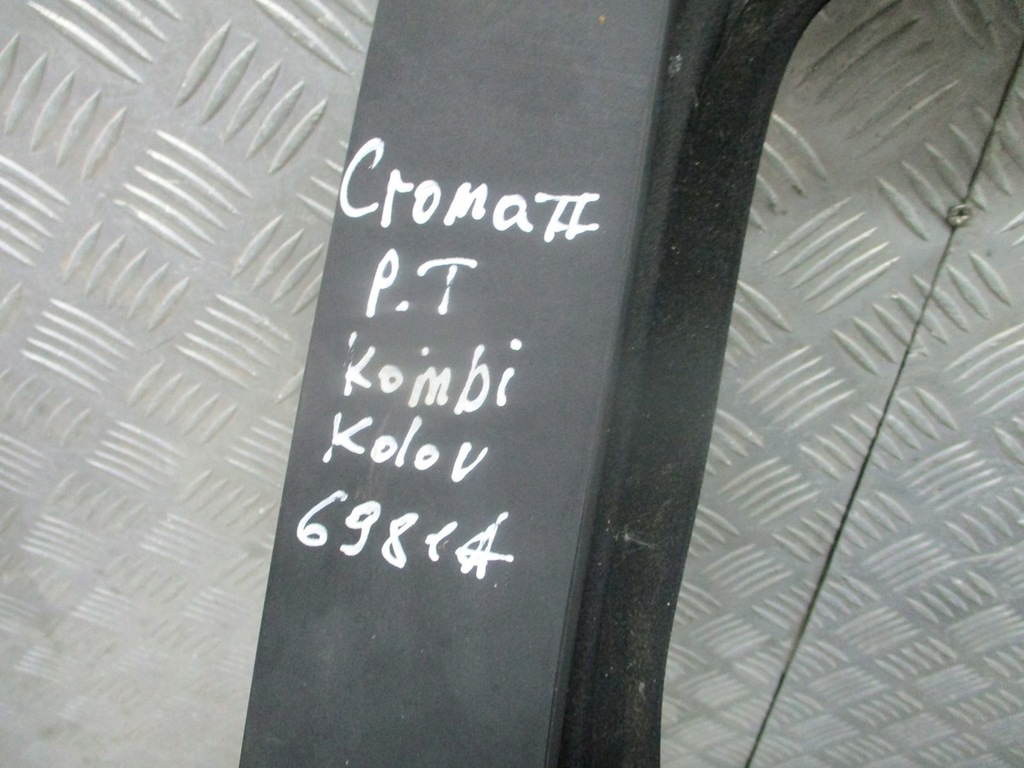 Croma II
P.T
Kombi
Kolor
698/A